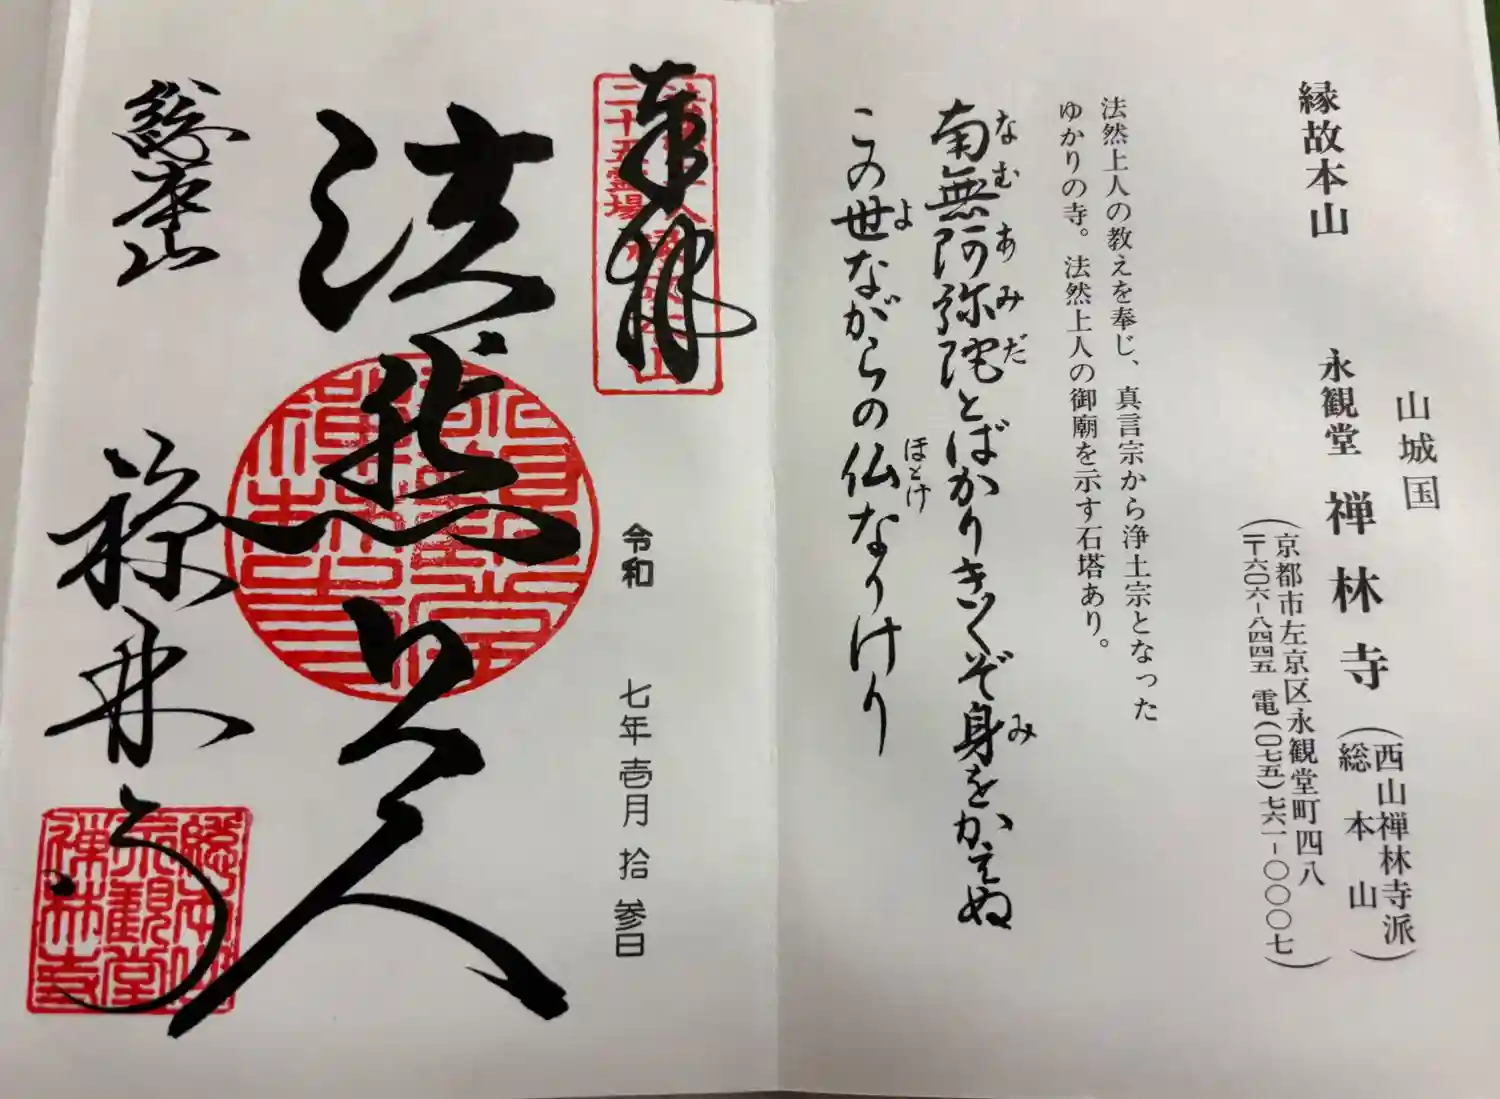 縁故本山
山城国
永観堂 禅林寺
(西山禅林寺派
総本山)
(京都市左京区永観堂町四八
〒六〇六-八四四五 電(〇七五)七六一-〇〇〇七)
法然上人の教えを奉じ、真言宗から浄土宗となった
ゆかりの寺。法然上人の御廟を示す石塔あり。
南無阿弥陀とばかりきくぞ身をかえぬ
なむあみだ
み
この世ながらの仏なりけり
よ
ほとけ
奉拝
二十五霊場
縁故本山
令和 七年壱月拾参日
法然上人
永観堂
禅林寺
総本山
禅林寺
総本山
永観堂
禅林寺